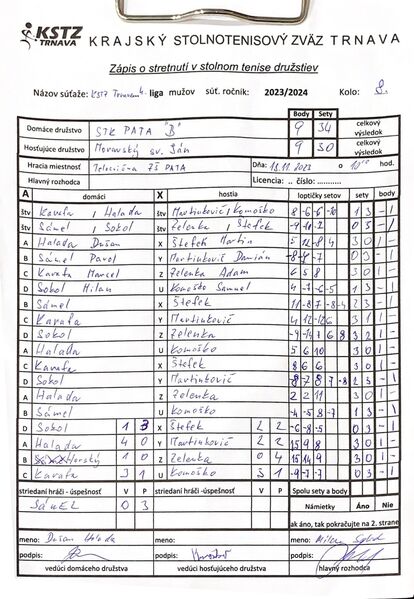 KSTZ TRNAVA KRAJSKÝ STOLNOTENISOVÝ ZVÄZ TRNAVA
Zápis o stretnutí v stolnom tenise družstiev
Názov súťaže: KSTZ Trnava 4. liga mužov súť. ročník: 2023/2024 Kolo: 8.
Body Sety
Domáce družstvo STK PATA "B" 9 34 celkový výsledok
Hosťujúce družstvo Moravský sv. Ján 9 30 celkový výsledok
Hracia miestnosť Telocvičňa ZŠ PATA Dňa: 18.11.2023 o 10:00 hod.
Hlavný rozhodca Licencia .. číslo: ..........
A domáci X hostia loptičky setov sety body
štv Karafa , Halada štv Martinkovič, Komoško 8 -6 -6 -10 1 3 - 1
štv Sámel , Sokol štv Zelenka , Štefek 0 3 - 1
A Halada Dušan X Štefek Martin 5 12 8 4 3 1 -
B Sámel Pavol Y Martinkovič Damián 0 3 - 1
C Karafa Marcel Z Zelenka Adam 6 5 8 3 0 1 -
D Sokol Milan U Komoško Samuel 1 3 - 1
B Sámel X Štefek 2 3 - 1
C Karafa Y Martinkovič 3 1 1 -
D Sokol Z Zelenka 3 2 1 -
A Halada U Komoško 5 6 10 3 0 1 -
C Karafa X Štefek 8 6 6 3 0 1 -
D Sokol Y Martinkovič 2 3 - 1
A Halada Z Zelenka 2 2 11 3 0 1 -
B Sámel U Komoško -4 -5 8 -7 1 3 - 1
D Sokol 1 3 X Štefek 2 2 -6 -8 -5 0 3 - 1
A Halada 4 0 Y Martinkovič 2 2 15 9 8 3 0 1 -
B Horský 1 0 Z Zelenka 0 4 15 14 9 3 0 1 -
C Karafa 3 1 U Komoško 3 1 -9 -7 -7 0 3 - 1
striedaní hráči - úspešnosť V P striedaní hráči -úspešnosť V P Spolu sety a body
SÁMEL 0 3 Námietky Áno Nie
ak áno, tak pokračujte na 2. strane
meno: Dušan Halada meno: meno: Milan
podpis: podpis: podpis:
vedúci domáceho družstva vedúci hosťujúceho družstva hlavný rozhodca